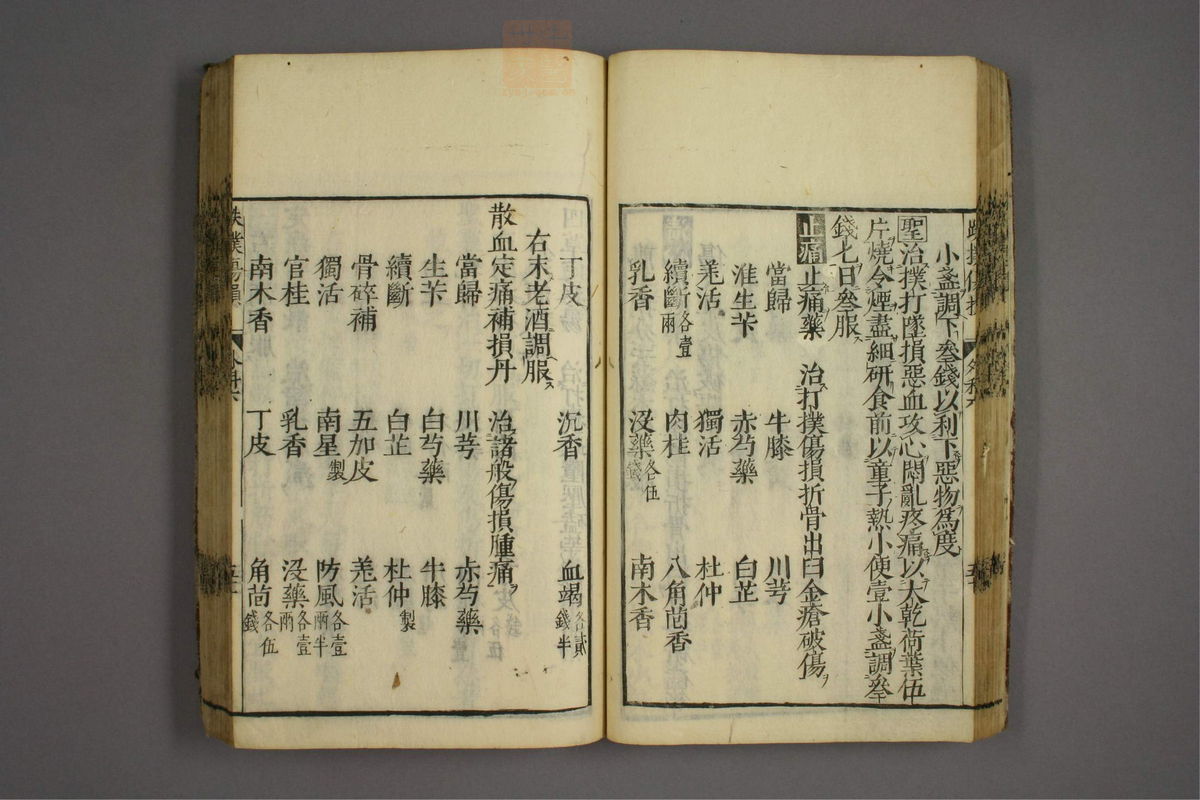 小盞調下叄錢以利下惡物爲度
聖治撲打墜損惡血攻心悶亂疼痛以大乾荷葉伍
片燒令煙盡細研食前以童子熱小便壹小盞調叄
錢七日叄服
止痛止痛藥 治打撲傷損折骨出臼金瘡破傷
當歸 牛膝 川芎
淮生芐 赤芍藥 白芷
羌活 獨活 杜仲
續斷各壹兩 肉桂 八角茴香
乳香 沒藥各伍錢 南木香
丁皮 沉香 血竭各貳錢半
右末老酒調服
散血定痛補損丹 治諸般傷損腫痛
當歸 川芎 赤芍藥
生芐 白芍藥 牛膝
續斷 白芷 杜仲製
骨碎補 五加皮 羌活
獨活 南星製 防風各壹兩半
官桂 乳香 沒藥各壹兩
南木香 丁皮 角茴各伍錢